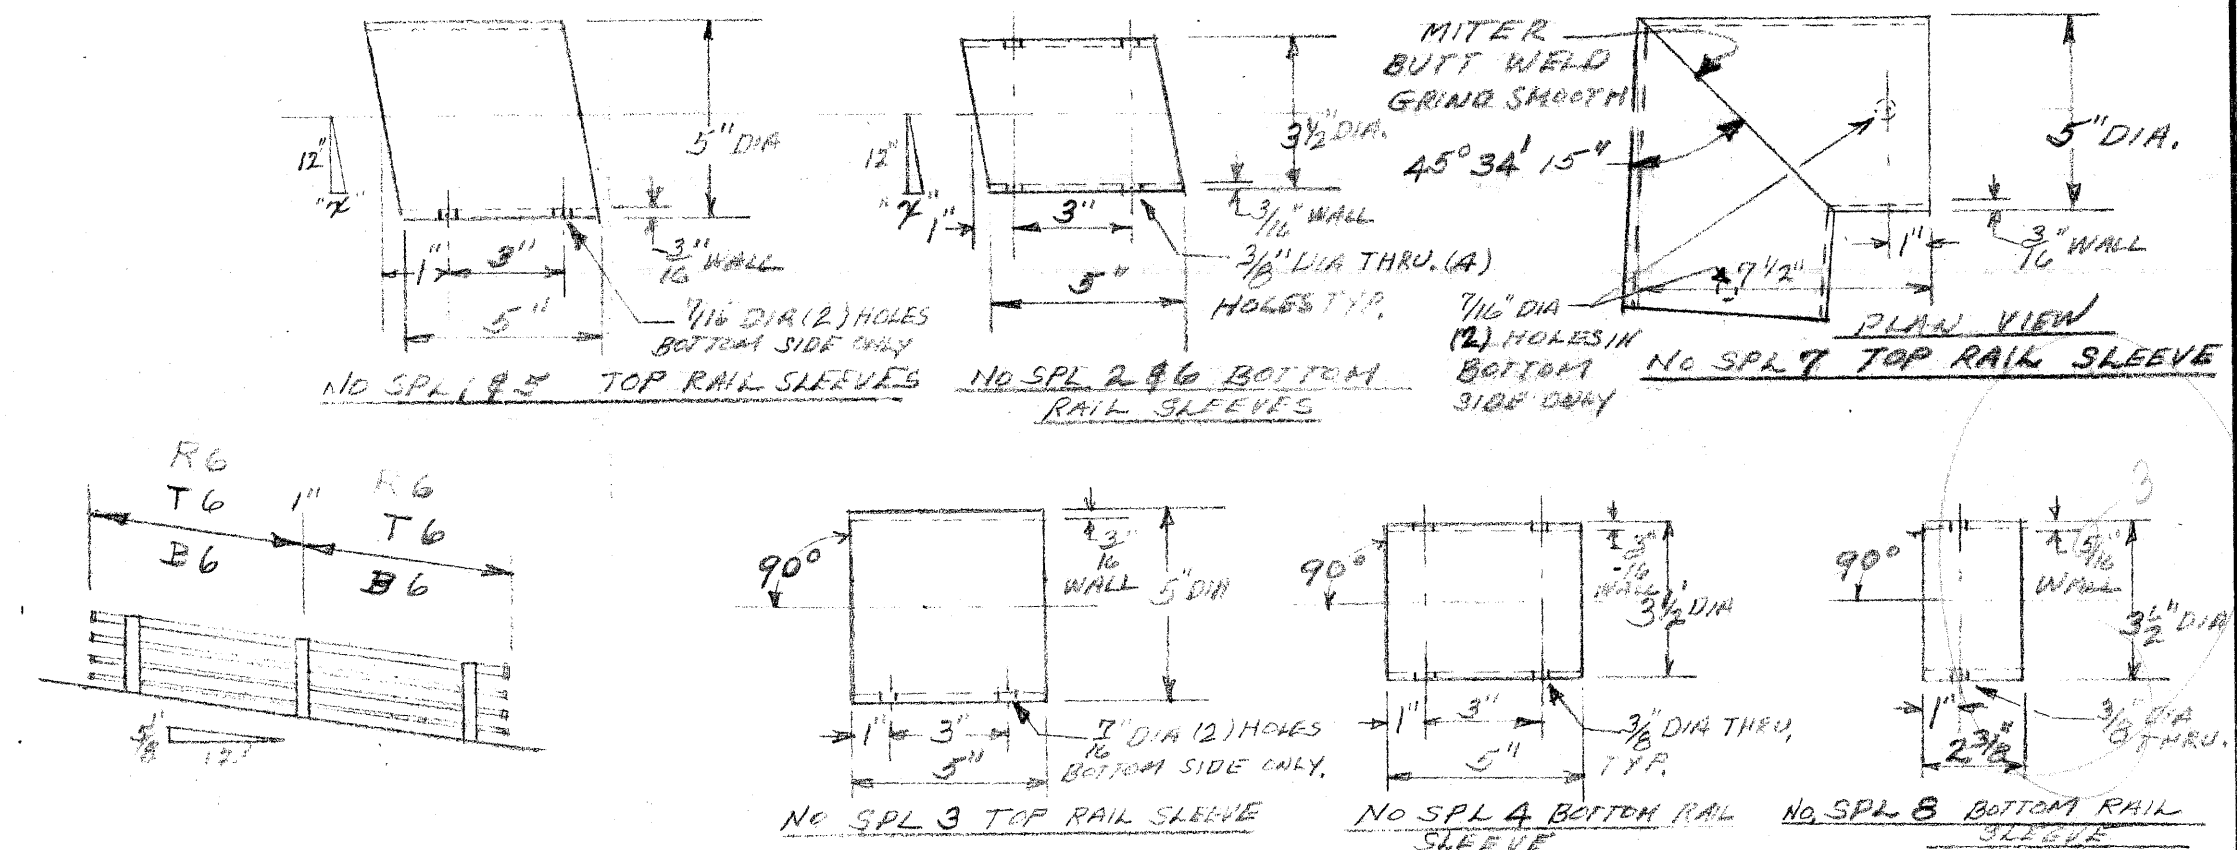 5" DIA
12"
"X"
3/16" WALL
1"
3"
5"
7/16 DIA (2) HOLES
BOTTOM SIDE ONLY
NO SPL 1 & 5 TOP RAIL SLEEVES
3 1/2" DIA.
12"
"X"
1"
3"
3/16" WALL
3/8" DIA THRU. (4)
HOLES TYP.
5"
NO SPL 2 & 6 BOTTOM
RAIL SLEEVES
MITER
BUTT WELD
GRIND SMOOTH
45° 34' 15"
5" DIA.
1"
3/16" WALL
7 1/2"
7/16" DIA
(2) HOLES IN
BOTTOM
SIDE ONLY
PLAN VIEW
NO SPL 7 TOP RAIL SLEEVE
R6
T6
B6
1"
R6
T6
B6
12"
90°
3/16"
WALL
5" DIA
1"
3"
5"
7/16" DIA (2) HOLES
BOTTOM SIDE ONLY.
NO SPL 3 TOP RAIL SLEEVE
90°
3/16"
WALL
3 1/2" DIA
1"
3"
5"
3/8" DIA THRU.
TYP.
NO SPL 4 BOTTOM RAIL
SLEEVE
3
90°
5/16"
WALL
3 1/2" DIA
1"
2 3/8"
3/8" DIA
THRU.
NO. SPL 8 BOTTOM RAIL
SLEEVE